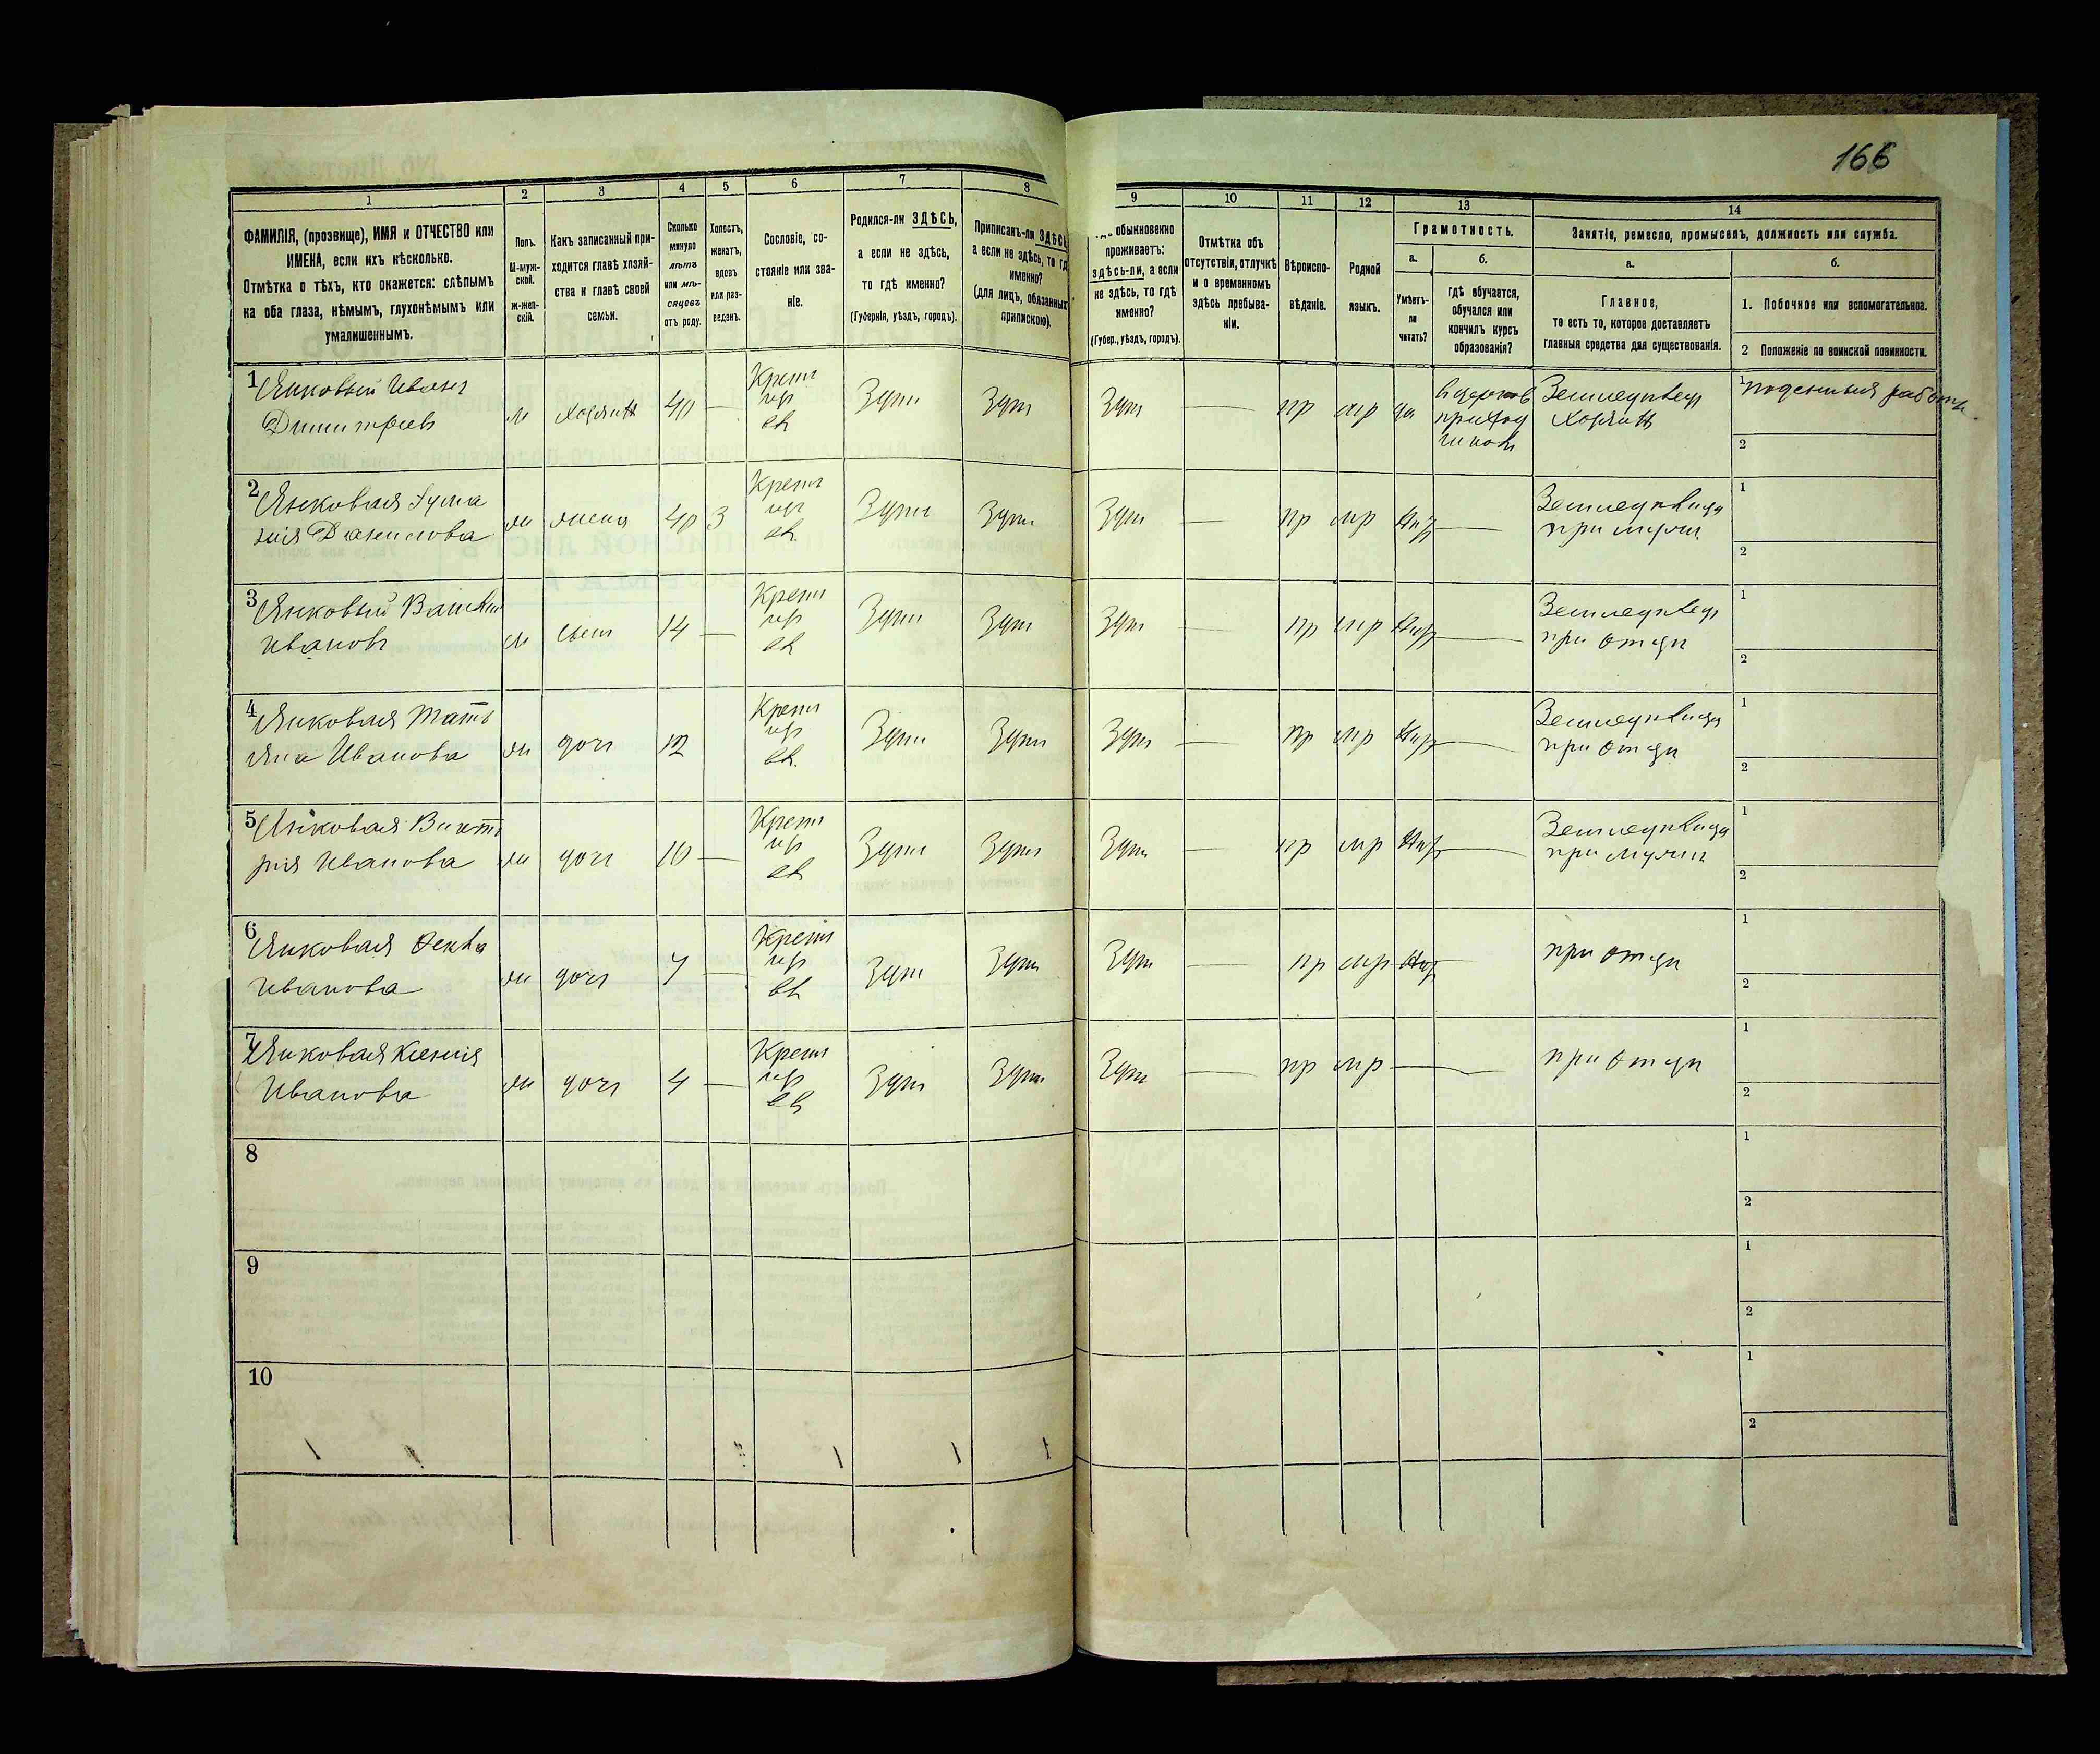 166
1
2
3
4
5
6
7
8
9
10
11
12
13
14
ФАМИЛІЯ, (прозвище), ИМЯ и ОТЧЕСТВО или
ИМЕНА, если ихъ нѣсколько.
Отмѣтка о тѣхъ, кто окажется: слѣпымъ
на оба глаза, нѣмымъ, глухонѣмымъ или
умалишеннымъ.
Полъ.
М-муж-
ской.
ж-жен-
скій.
Какъ записанный при-
ходится главѣ хозяй-
ства и главѣ своей
семьи.
Сколько
минуло
лѣтъ
или мѣ-
сяцевъ
отъ роду.
Холостъ,
женатъ,
вдовъ
или раз-
веденъ.
Сословіе, со-
стояніе или зва-
ніе.
Родился-ли ЗДѢСЬ,
а если не здѣсь,
то гдѣ именно?
(Губернія, уѣздъ, городъ).
Приписанъ-ли ЗДѢСЬ
а если не здѣсь, то гд
именно?
(для лицъ, обязанныхъ
припискою).
обыкновенно
проживаетъ:
здѣсь-ли, а если
не здѣсь, то гдѣ
именно?
(Губер., уѣздъ, городъ).
Отмѣтка объ
отсутствіи, отлучкѣ
и о временномъ
здѣсь пребыва-
ніи.
Вѣроиспо-
вѣданіе.
Родной
языкъ.
Грамотность.
а.
Умѣетъ-
ли
читать?
б.
гдѣ обучается,
обучался или
кончилъ курсъ
образованія?
Занятіе, ремесло, промыселъ, должность или служба.
а.
Главное,
то есть то, которое доставляетъ
главныя средства для существованія.
б.
1. Побочное или вспомогательное.
2 Положеніе по воинской повинности.
1
Янковый Иванъ
Димитріевъ
м
хозяинъ
40
—
Здѣсь
Здѣсь
Здѣсь
—
пр
мр
да
приход
школѣ
Земледѣлец
хозяинъ
1
поденныя работы
2
2
Янковая
Данилова
ж
жена
40
3
Здѣсь
Здѣсь
Здѣсь
—
пр
мр
—
Земледѣлица
при мужѣ
1
2
3
Янковый
Ивановъ
м
сын
14
—
Здѣсь
Здѣсь
Здѣсь
—
пр
мр
—
Земледѣлец
при отцѣ
1
2
4
Янковая Татъ
яна Иванова
ж
доч
12
Здѣсь
Здѣсь
Здѣсь
—
пр
мр
—
Земледѣлица
при отцѣ
1
2
5
Янковая
Иванова
ж
доч
10
—
Здѣсь
Здѣсь
Здѣсь
—
пр
мр
—
Земледѣлица
при мужѣ
1
2
6
Янковая Фекла
Иванова
ж
доч
7
—
Здѣсь
Здѣсь
Здѣсь
—
пр
мр
—
при отцѣ
1
2
7
Янковая Ксенія
Иванова
ж
доч
4
—
Здѣсь
Здѣсь
Здѣсь
—
пр
мр
—
—
при отцѣ
1
2
8
1
2
9
1
2
10
1
2